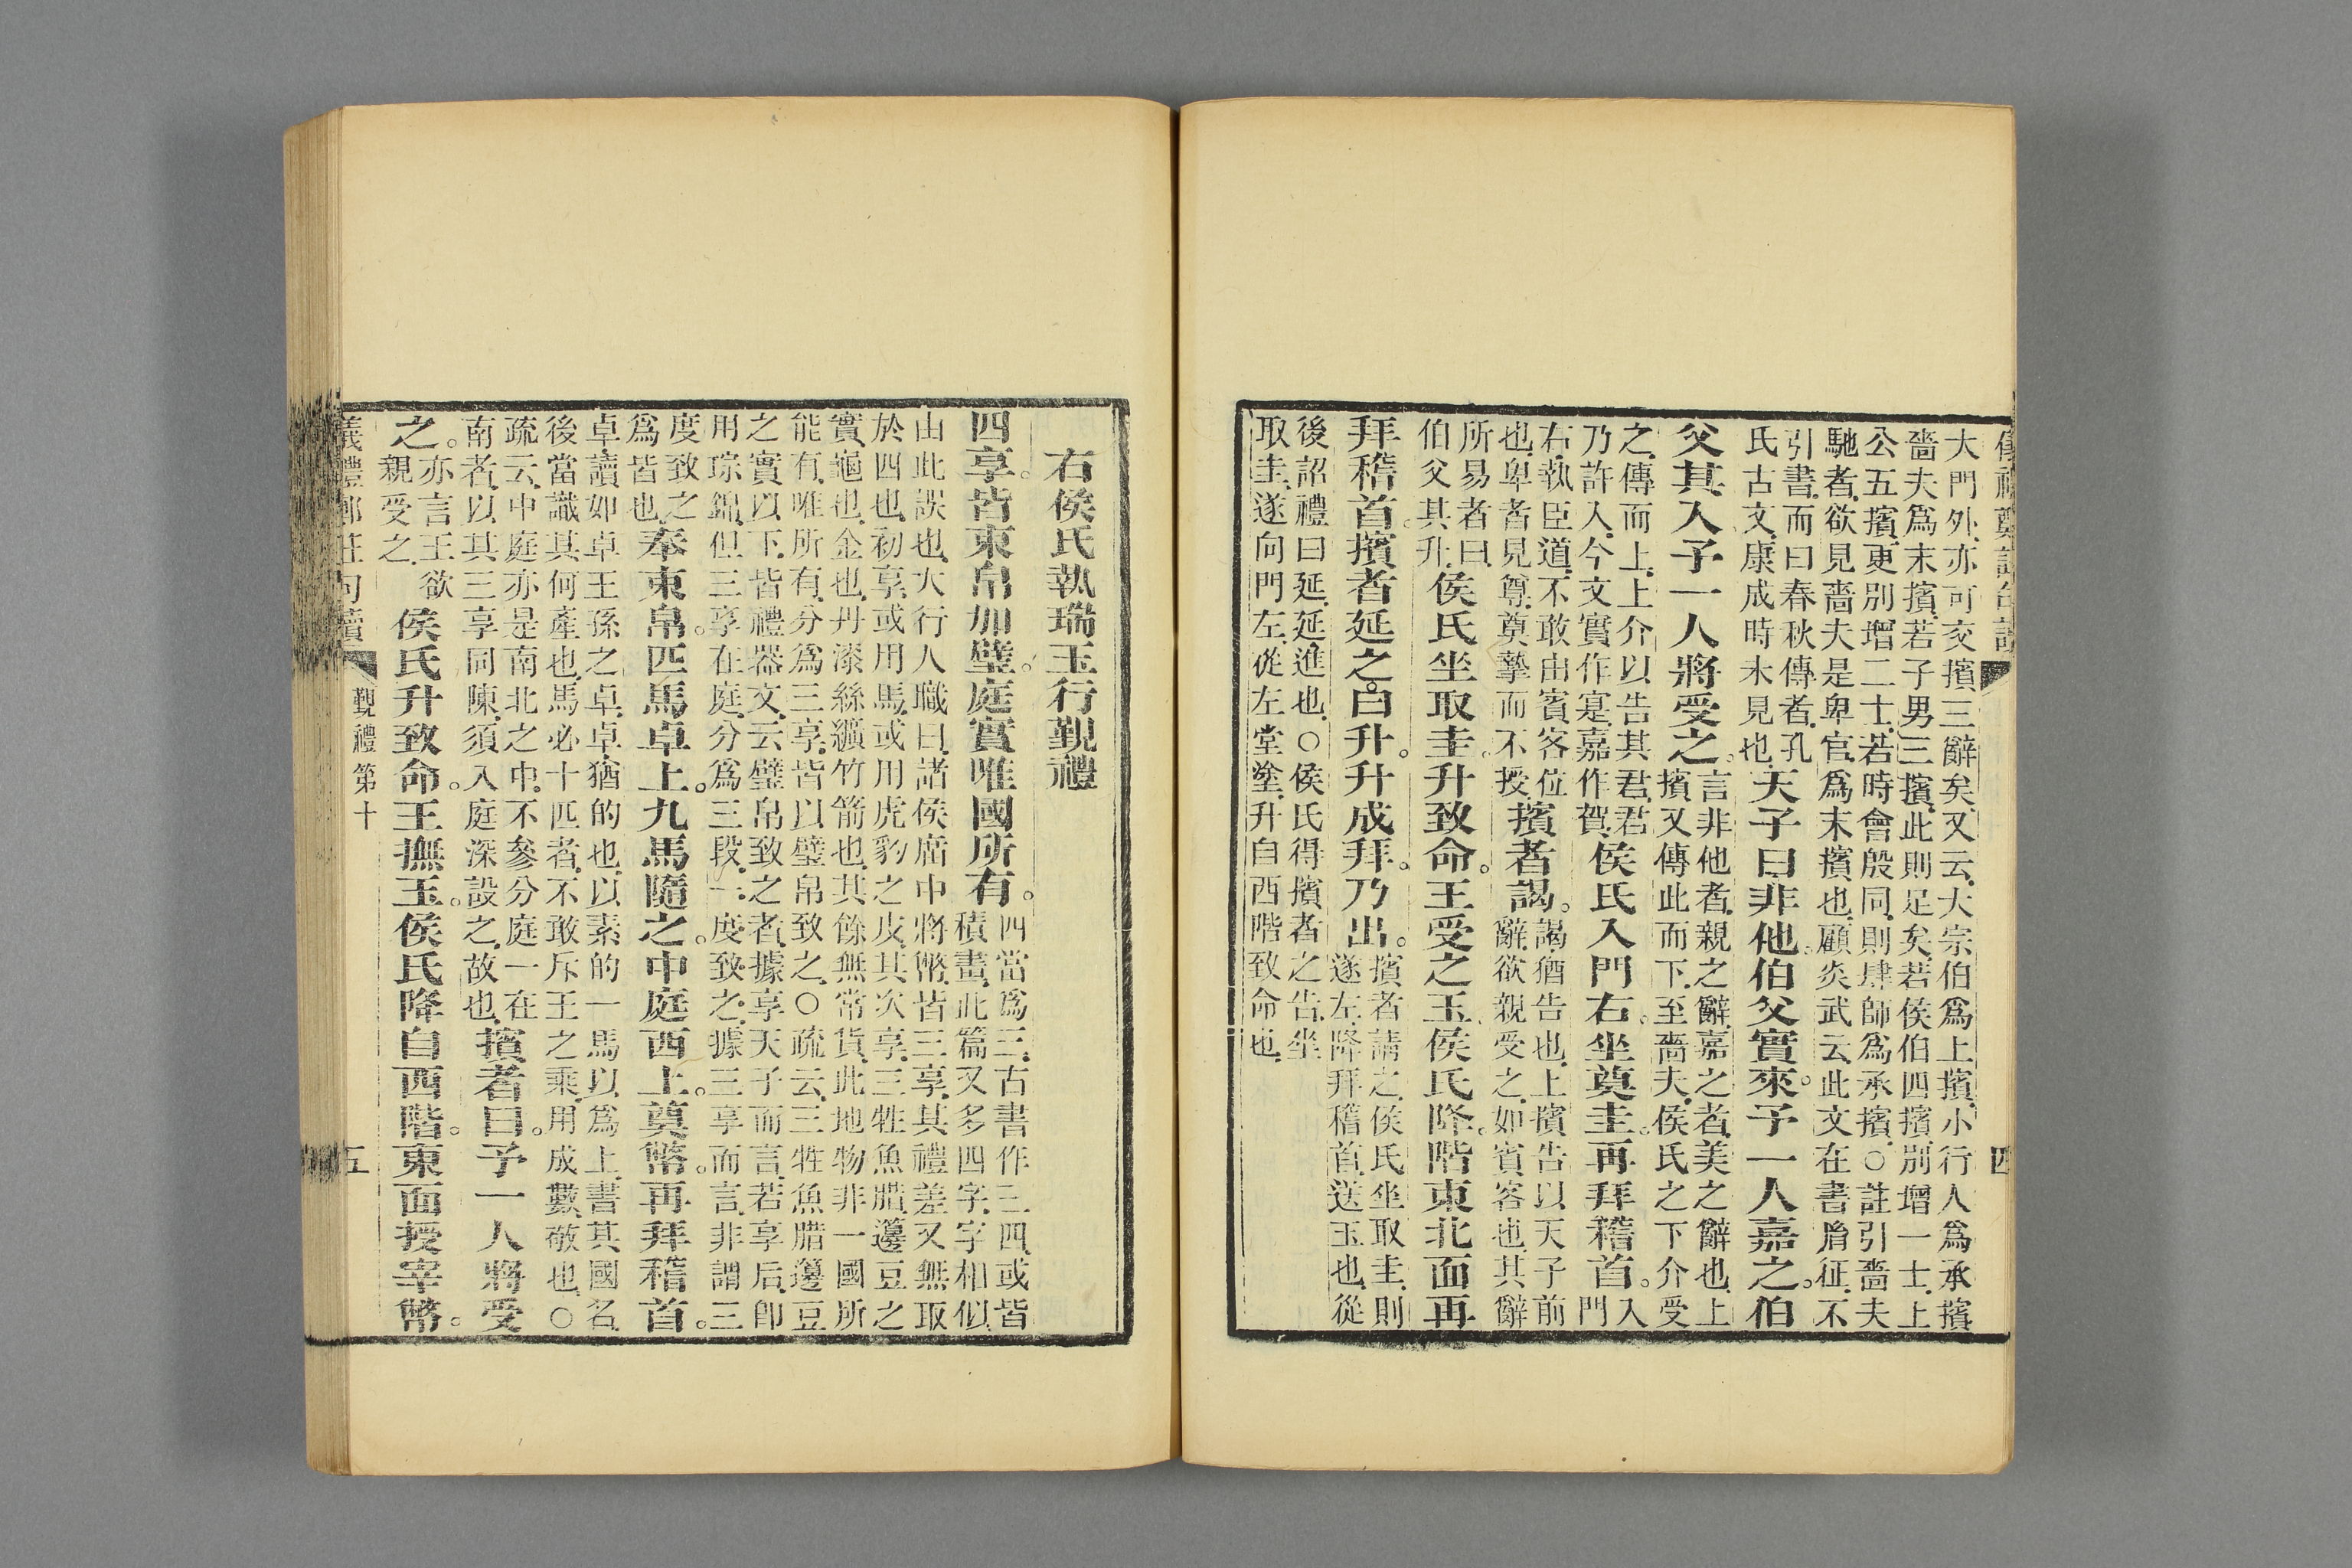 大門外、亦可交擯三辭矣、又云、大宗伯爲上擯、小行人爲承擯
嗇夫爲末擯、若子男三擯、此則足矣、若侯伯四擯、別增一士、上
公五擯、更別增二士、若時會殷同、則肆師爲承擯、○註引嗇夫
馳者、欲見嗇夫是卑官、爲末擯也、顧炎武云、此文在書胤征、不
引書、而曰春秋傳者、孔
氏古文、康成時未見也、
天子曰非他。伯父實來。予一人嘉之。伯
父其入。予一人將受之。
言非他者、親之辭、嘉之者、美之辭也、上
擯又傳此而下、至嗇夫、侯氏之下介受
之、傳而上、上介以告其君、君
乃許入、今文實作寔、嘉作賀、
侯氏入門右。坐奠圭。再拜稽首。
入
門
右、執臣道、不敢由賓客位
也、卑者見尊、奠摯而不授、
擯者謁。
謁、猶告也、上擯告以天子前
辭、欲親受之、如賓客也、其辭
所易者曰、
伯父其升、
侯氏坐取圭。升致命。王受之玉。侯氏降。階東北面再
拜稽首。擯者延之。曰升。升成拜。乃出。
擯者請之、侯氏坐取圭、則
遂左、降拜稽首、送玉也、從
後詔禮曰延、延、進也、○侯氏得擯者之告、坐
取圭、遂向門左、從左堂塗、升自西階致命也、
四
右侯氏執瑞玉行覲禮
四享。皆束帛加璧。庭實唯國所有。
四當爲三、古書作三四、或皆
積畫、此篇又多四字、字相似、
由此誤也、大行人職曰、諸侯廟中將幣、皆三享、其禮差又無取
於四也、初享、或用馬、或用虎豹之皮、其次享、三牲魚腊、籩豆之
實、龜也、金也、丹漆絲纊竹箭也、其餘無常貨、此地物非一國所
能有、唯所有、分爲三享、皆以璧帛致之、○疏云、三牲魚腊籩豆
之實以下、皆禮器文、云璧帛致之者、據享天子而言、若享后、卽
用琮錦、但三享在庭、分爲三段、一度致之、據三享而言、非謂三
度致之
爲皆也、
奉束帛。匹馬卓上。九馬隨之。中庭西上。奠幣。再拜稽首。
卓、讀如卓王孫之卓、卓、猶的也、以素的一馬以爲上、書其國名、
後當識其何產也、馬必十匹者、不敢斥王之乘、用成數、敬也、○
疏云、中庭、亦是南北之中、不參分庭一在
南者、以其三享同陳、須入庭深設之、故也、
擯者曰。予一人將受
之。
亦言王欲
親受之、
侯氏升致命。王撫玉。侯氏降自西階。東面授宰幣。
儀禮鄭註句讀 覲禮第十 五